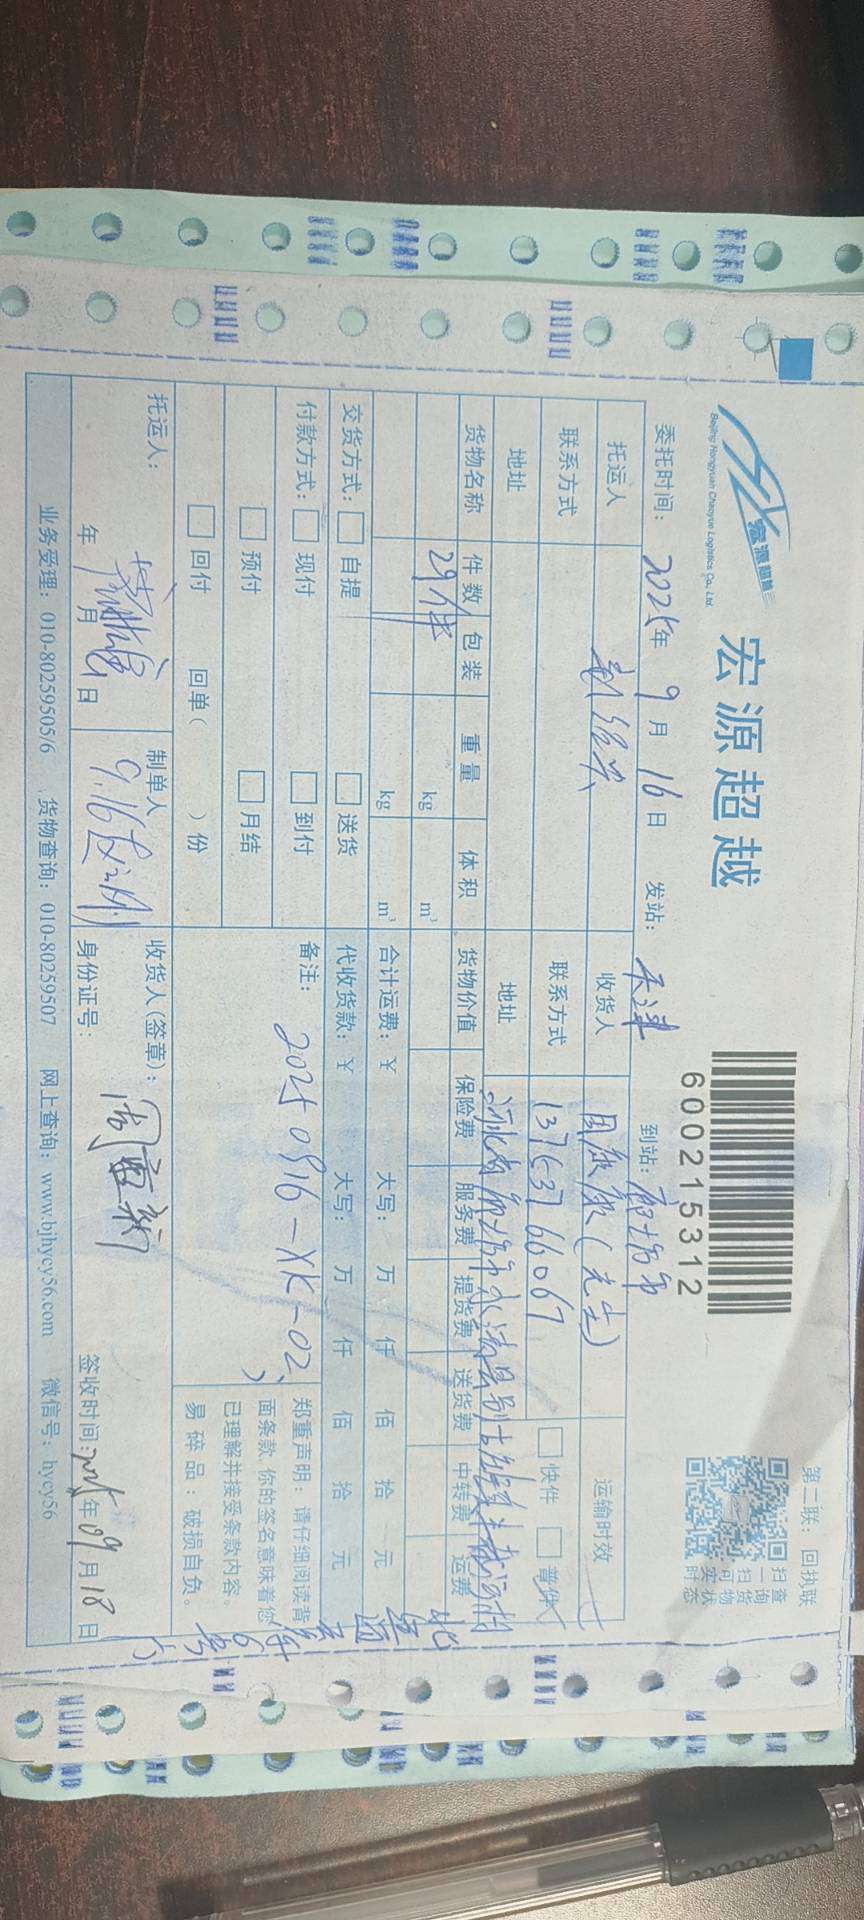 宏源超越
Beijing Hongyuan Chaoyue Logistics Co., Ltd
宏源超越
600215312
第二联：回执联
扫一扫可实时
查询货物状态
委托时间：2025年9月16日 发站：天津 到站：廊坊市
托运人 收货人 周庆康(先生) 运输时效
联系方式 联系方式 13763766067 快件 普件
地址 地址 河北省廊坊市永清县别古庄镇
货物名称 件数 包装 重量 体积 货物价值 保险费 服务费 提货费 送货费 中转费 运费
29件 kg m³
kg m³ 合计运费：¥ 大写： 万 仟 佰 拾 元
交货方式： 自提 送货 代收货款：¥ 大写： 万 仟 佰 拾 元
付款方式： 现付 到付 备注： 20250916-XK-02
预付 月结
回付 回单( )份
郑重声明：请仔细阅读背
面条款，你的签名意味着您
已理解并接受条款内容。
易碎品：破损自负。
托运人： 制单人 9.16 收货人(签章)：
年 月 日 身份证号： 签收时间：2025年09月18日
业务受理：010-80259505/6 货物查询：010-80259507 网上查询：www.bjhycy56.com 微信号：hycy56